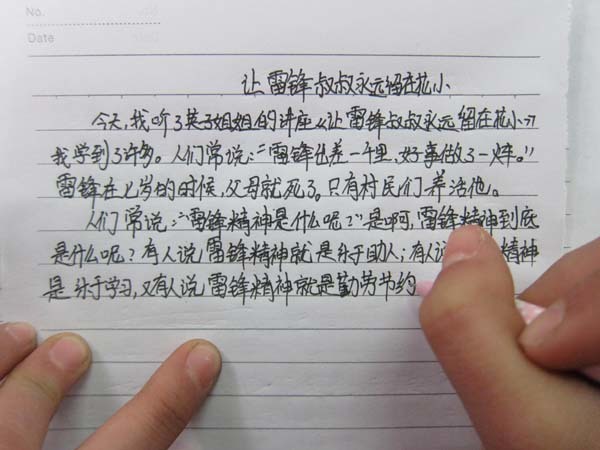 No.
Date
让雷锋叔叔永远留在花小
今天,我听了英子姐姐的讲座《让雷锋叔叔永远留在花小》
我学到了许多。人们常说:“雷锋出差一千里,好事做了一火车。”
雷锋在七岁的时候,父母就死了。只有村民们养活他。
人们常说:“雷锋精神是什么呢?”是啊,雷锋精神到底
是什么呢?有人说雷锋精神就是乐于助人;有人说 精神
是乐于学习,又有人说雷锋精神就是勤劳节约